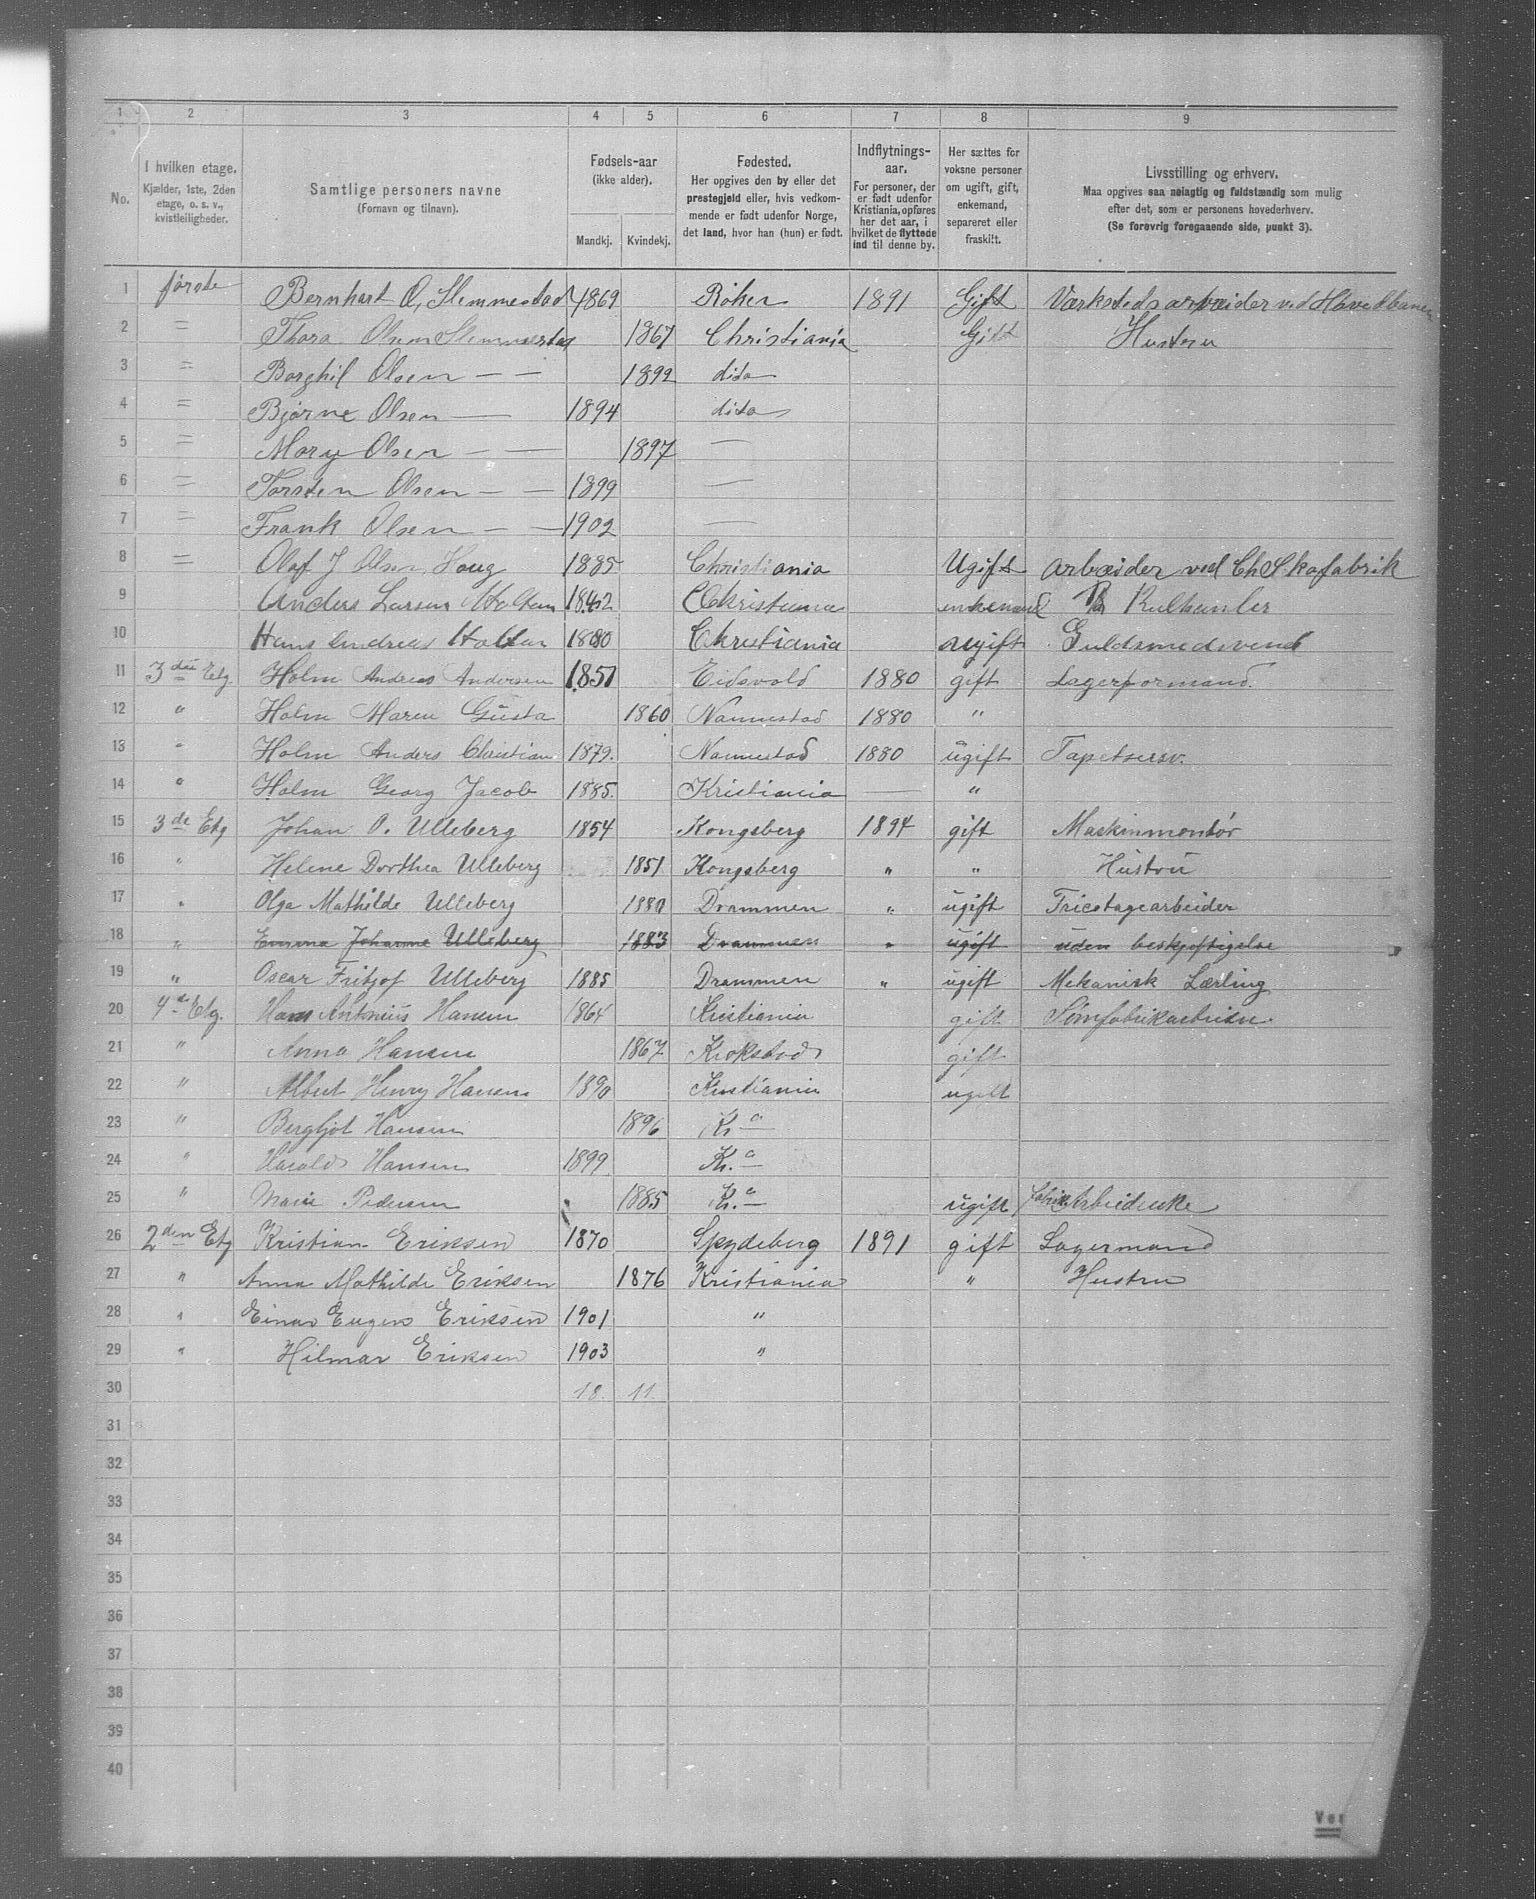 1 2 3 4 5 6 7 8 9
No. I hvilken etage. Kjælder, 1ste, 2den etage, o. s. v., kvistleiligheder. Samtlige personers navne (Fornavn og tilnavn). Fødsels-aar (ikke alder). Mandkj. Kvindekj. Fødested. Her opgives den by eller det prestegjeld eller, hvis vedkommende er født udenfor Norge, det land, hvor han (hun) er født. Indflytnings-aar. For personer, der er født udenfor Kristiania, opføres her det aar, i hvilket de flyttede ind til denne by. Her sættes for voksne personer om ugift, gift, enkemand, separeret eller fraskilt. Livsstilling og erhverv. Maa opgives saa nøiagtig og fuldstændig som mulig efter det, som er personens hovederhverv. (Se forøvrig foregaaende side, punkt 3).
1 første Bernhart O, Slemmestad 1869 Røken 1891 Gift Værkstedsarbeider ved Hovedbanen
2 = Thora Olsen Slemmestad 1867 Christiania Gift Hustru
3 = Borghil Olsen — — 1892 dito
4 = Bjørne Olsen — 1894 dito
5 = Mary Olsen — — 1897 —
6 = Torsten Olsen — — 1899 —
7 = Frank Olsen — — 1902 —
8 = Olaf J Olsen Houg 1885 Christiania Ugift Arbeider ved Ch Skofabrik
9 Anders Larsen Holtan 1842 Christiania enkemand Kulhanler
10 Hans Andreas Holtan 1880 Christiania ugift Guldsmedsvend
11 3die Etg Holm Andreas Andersen 1851 Eidsvold 1880 gift Lagerformand.
12 " Holm Maren Gusta 1860 Nannestad 1880 "
13 " Holm Anders Christian 1879. Nannestad 1880 ugift Tapetsersv.
14 " Holm Georg Jacob 1885. Kristiania — "
15 3de Etg Johan O. Ulleberg 1854 Kongsberg 1894 gift Maskinmontør
16 " Helene Dorthea Ulleberg 1851 Kongsberg " " Hustru
17 " Olga Mathilde Ulleberg 1880 Drammen " ugift Tricotagearbeider
18 " Emma Johanne Ulleberg 1883 Drammen " ugift uden beskjæftigelse
19 " Oscar Fritjof Ulleberg 1885 Drammen " ugift Mekanisk Lærling
20 4de Etg. Hans Antonius Hansen 1864 Kristiania gift Sømfabrikarbeider.
21 " Anna Hansen 1867 Krokstad gift
22 " Albert Henry Hansen 1890 Kristiania ugift
23 " Bergljot Hansen 1896 Kr.a
24 " Harald Hansen 1899 Kr.a
25 " Marie Pedersen 1885 Kr.a ugift fabrikArbeiderske
26 2den Etg Kristian Eriksen 1870 Spydeberg 1891 gift Lagermand
27 " Anna Mathilde Eriksen 1876 Kristiania " Hustru
28 " Einar Eugen Eriksen 1901 "
29 " Hilmar Eriksen 1903 "
30 18. 11.
31
32
33
34
35
36
37
38
39
40